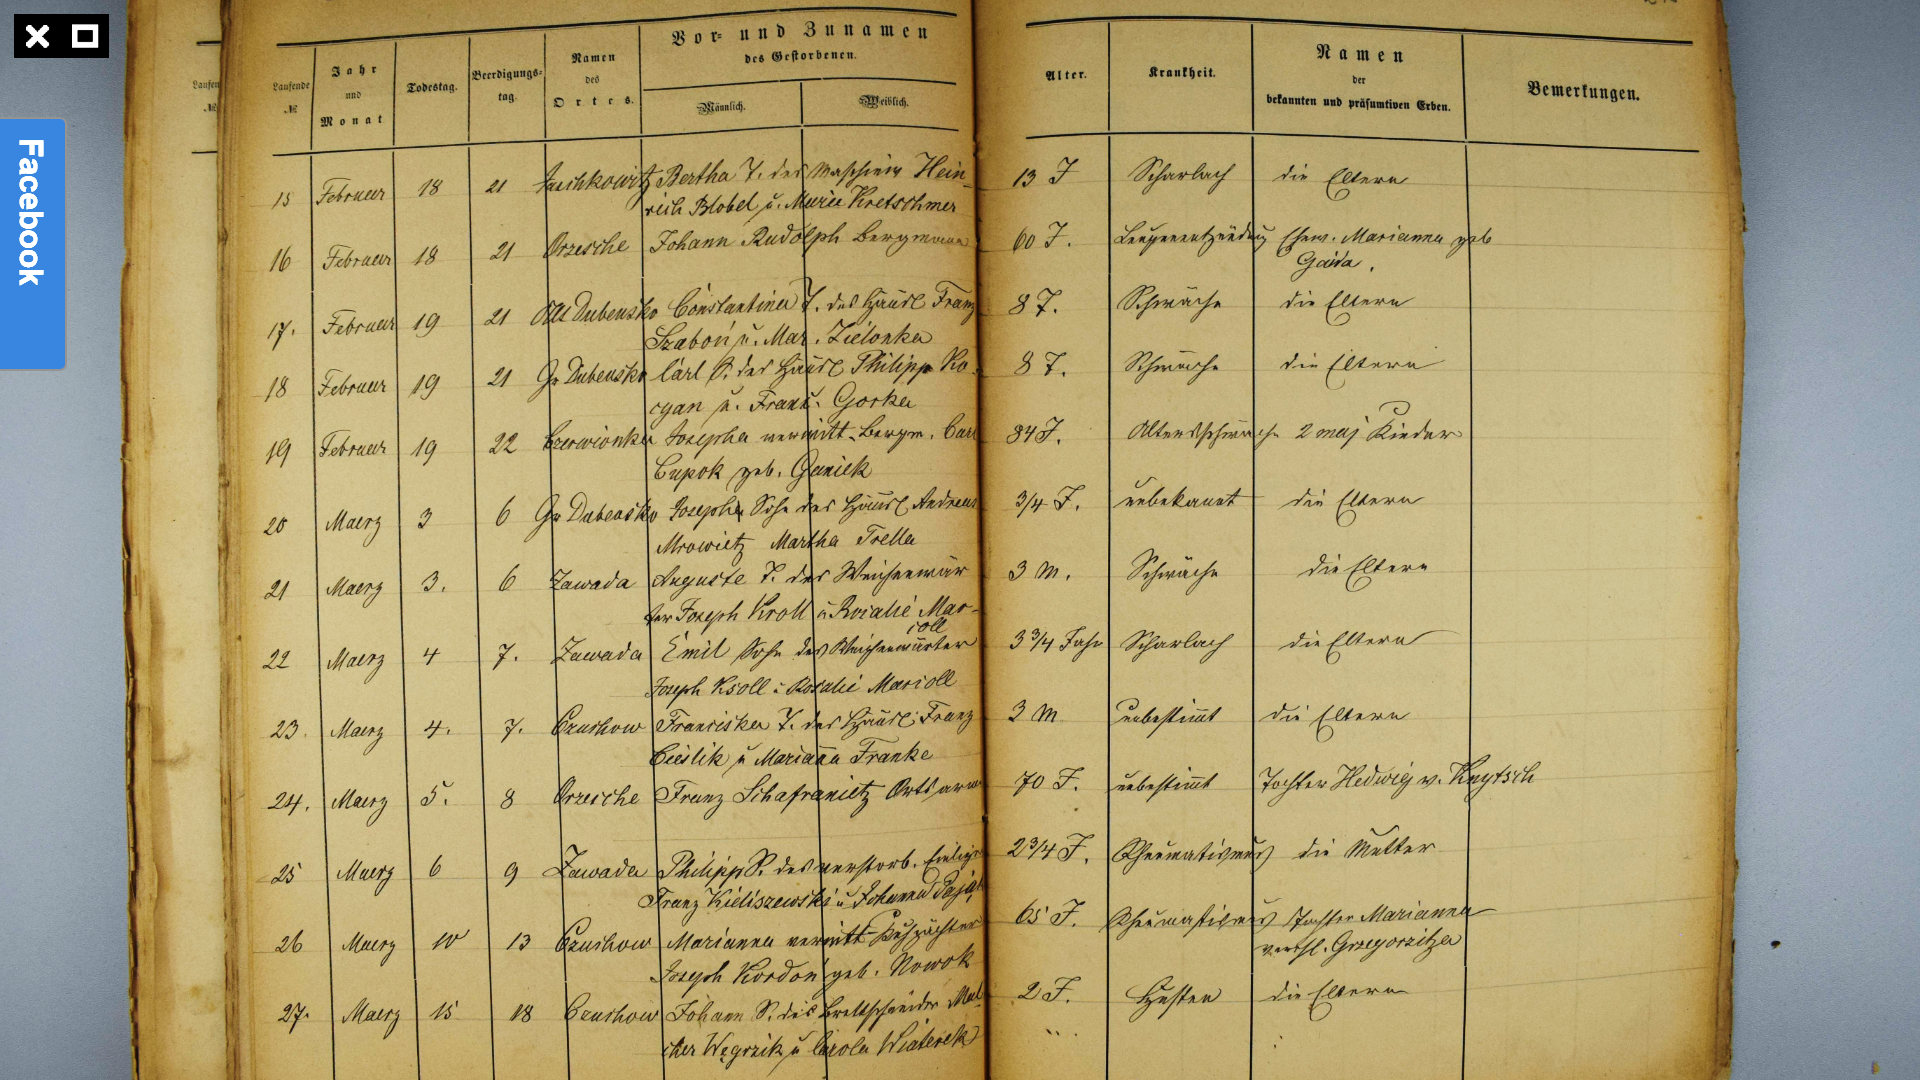 Facebook
Laufende №
Jahr und Monat
Todestag.
Beerdigungs-tag.
Namen des Ortes.
Vor- und Zunamen des Gestorbenen.
Männlich.
Weiblich.
Alter.
Krankheit.
Namen der bekannten und präsumtiven Erben.
Bemerkungen.
15 Februar 18 21 Jaschkowitz Bertha T. des Maschinin Hein- 13 J Scharlach die Eltern
rich Blobel u. Marie Kretschmer
16 Februar 18 21 Orzesche Johann Rudolph Bergmann 60 J. Lungenentzündung Ehew. Marianna geb
Gaida.
17. Februar 19 21 Alt Dubensko Constantina T. des Häusl Franz 8 T. Schwäche die Eltern
Szaboń u. Mar. Zielonka
18 Februar 19 21 Gr Dubensko Carl S. des Häusl Philipp Ko- 8 T. Schwäche die Eltern
cyan u. Franz. Gorka
19 Februar 19 22 Czerwionka Josepha verwitt. Bergm. Carl 84 J. Altersschwäche 2 maj Kinder
Cupok geb. Ganiek
20 Maerz 3 6 Gr Dubensko Joseph Sohn des Häusl Andreas 3/4 J. unbekannt die Eltern
Mrowietz Martha Trella
21 Maerz 3. 6 Zawada Auguste T. des Weichenwär 3 M. Schwäche die Eltern
ter Joseph Kroll u Rosalie Mar-
coll
22 Maerz 4 7. Zawada Emil Sohn des Weichenwärter 3 3/4 Jahr Scharlach die Eltern
Joseph Ksoll u Rosalie Marcoll
23. Maerz 4. 7. Czuchow Franciska T. des Häusl. Franz 3 M unbestimmt die Eltern
Cieslik u Marianna Franke
24. Maerz 5. 8 Orzesche Franz Schafranietz Ortsarm 70 J. unbestimmt Tochter Hedwig v.
25 Maerz 6 9 Zawada Philipp S. des verstorb. 2 3/4 J. Rheumatismus die Mutter
Franz Kieliszewski u Johanna
26 Maerz 10 13 Czuchow Marianna verwitt. 65 J. Rheumatismus Tochter Marianna
Joseph Kordoń geb. Nowok verehl. Grzegorzitza
27. Maerz 15 18 Czuchow Johann S. des Brettschneider Mel 2 J. Husten die Eltern
cher Węgrzik u Carola Wiaterek